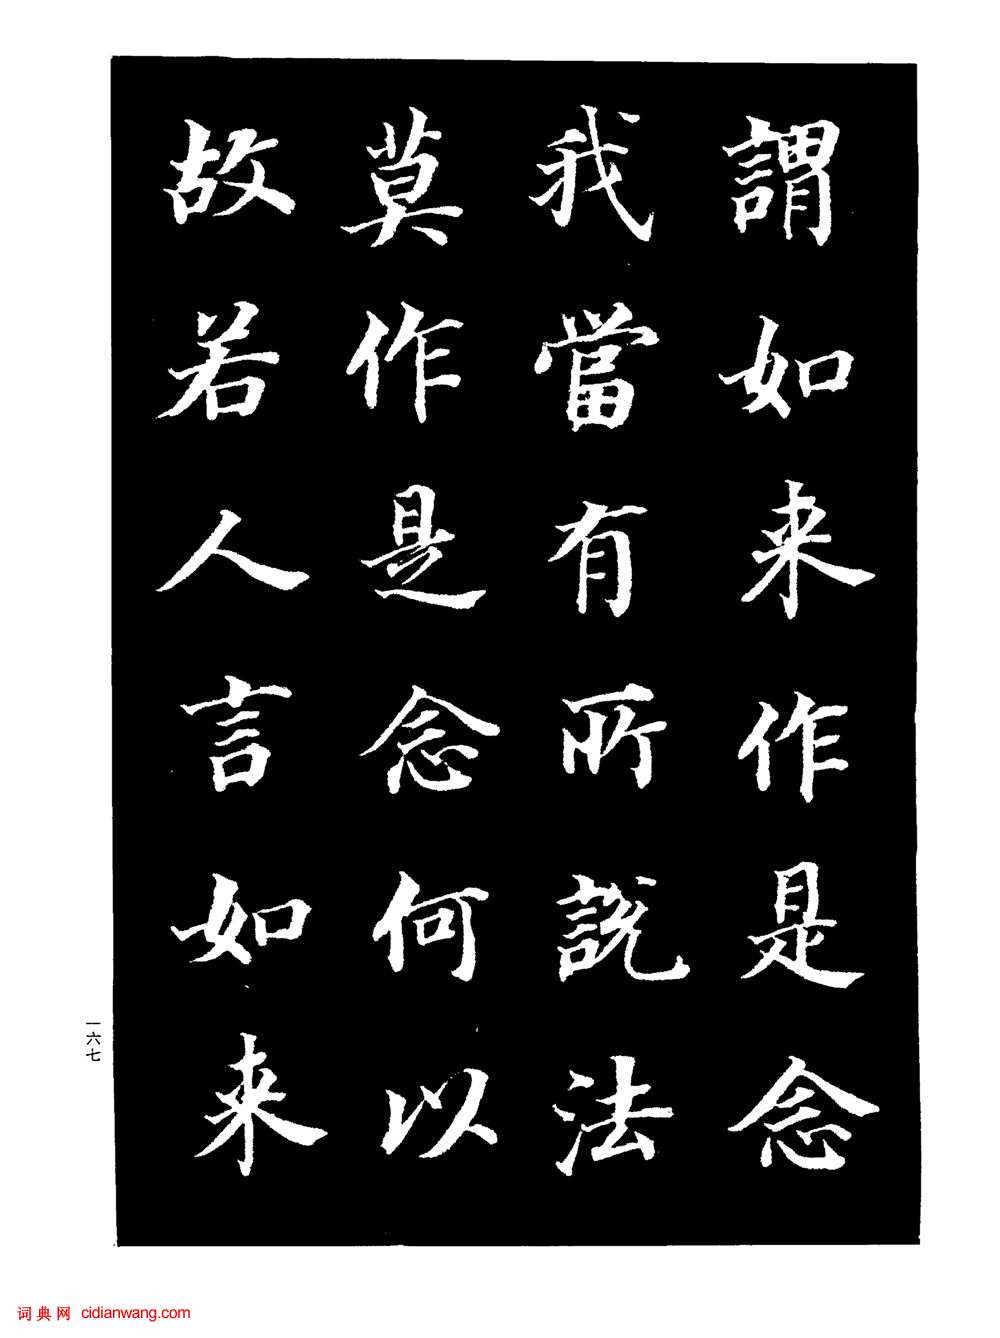 謂如来作是念
我當有所說法
莫作是念何以
故若人言如来
一六七
词典网 cidianwang.com